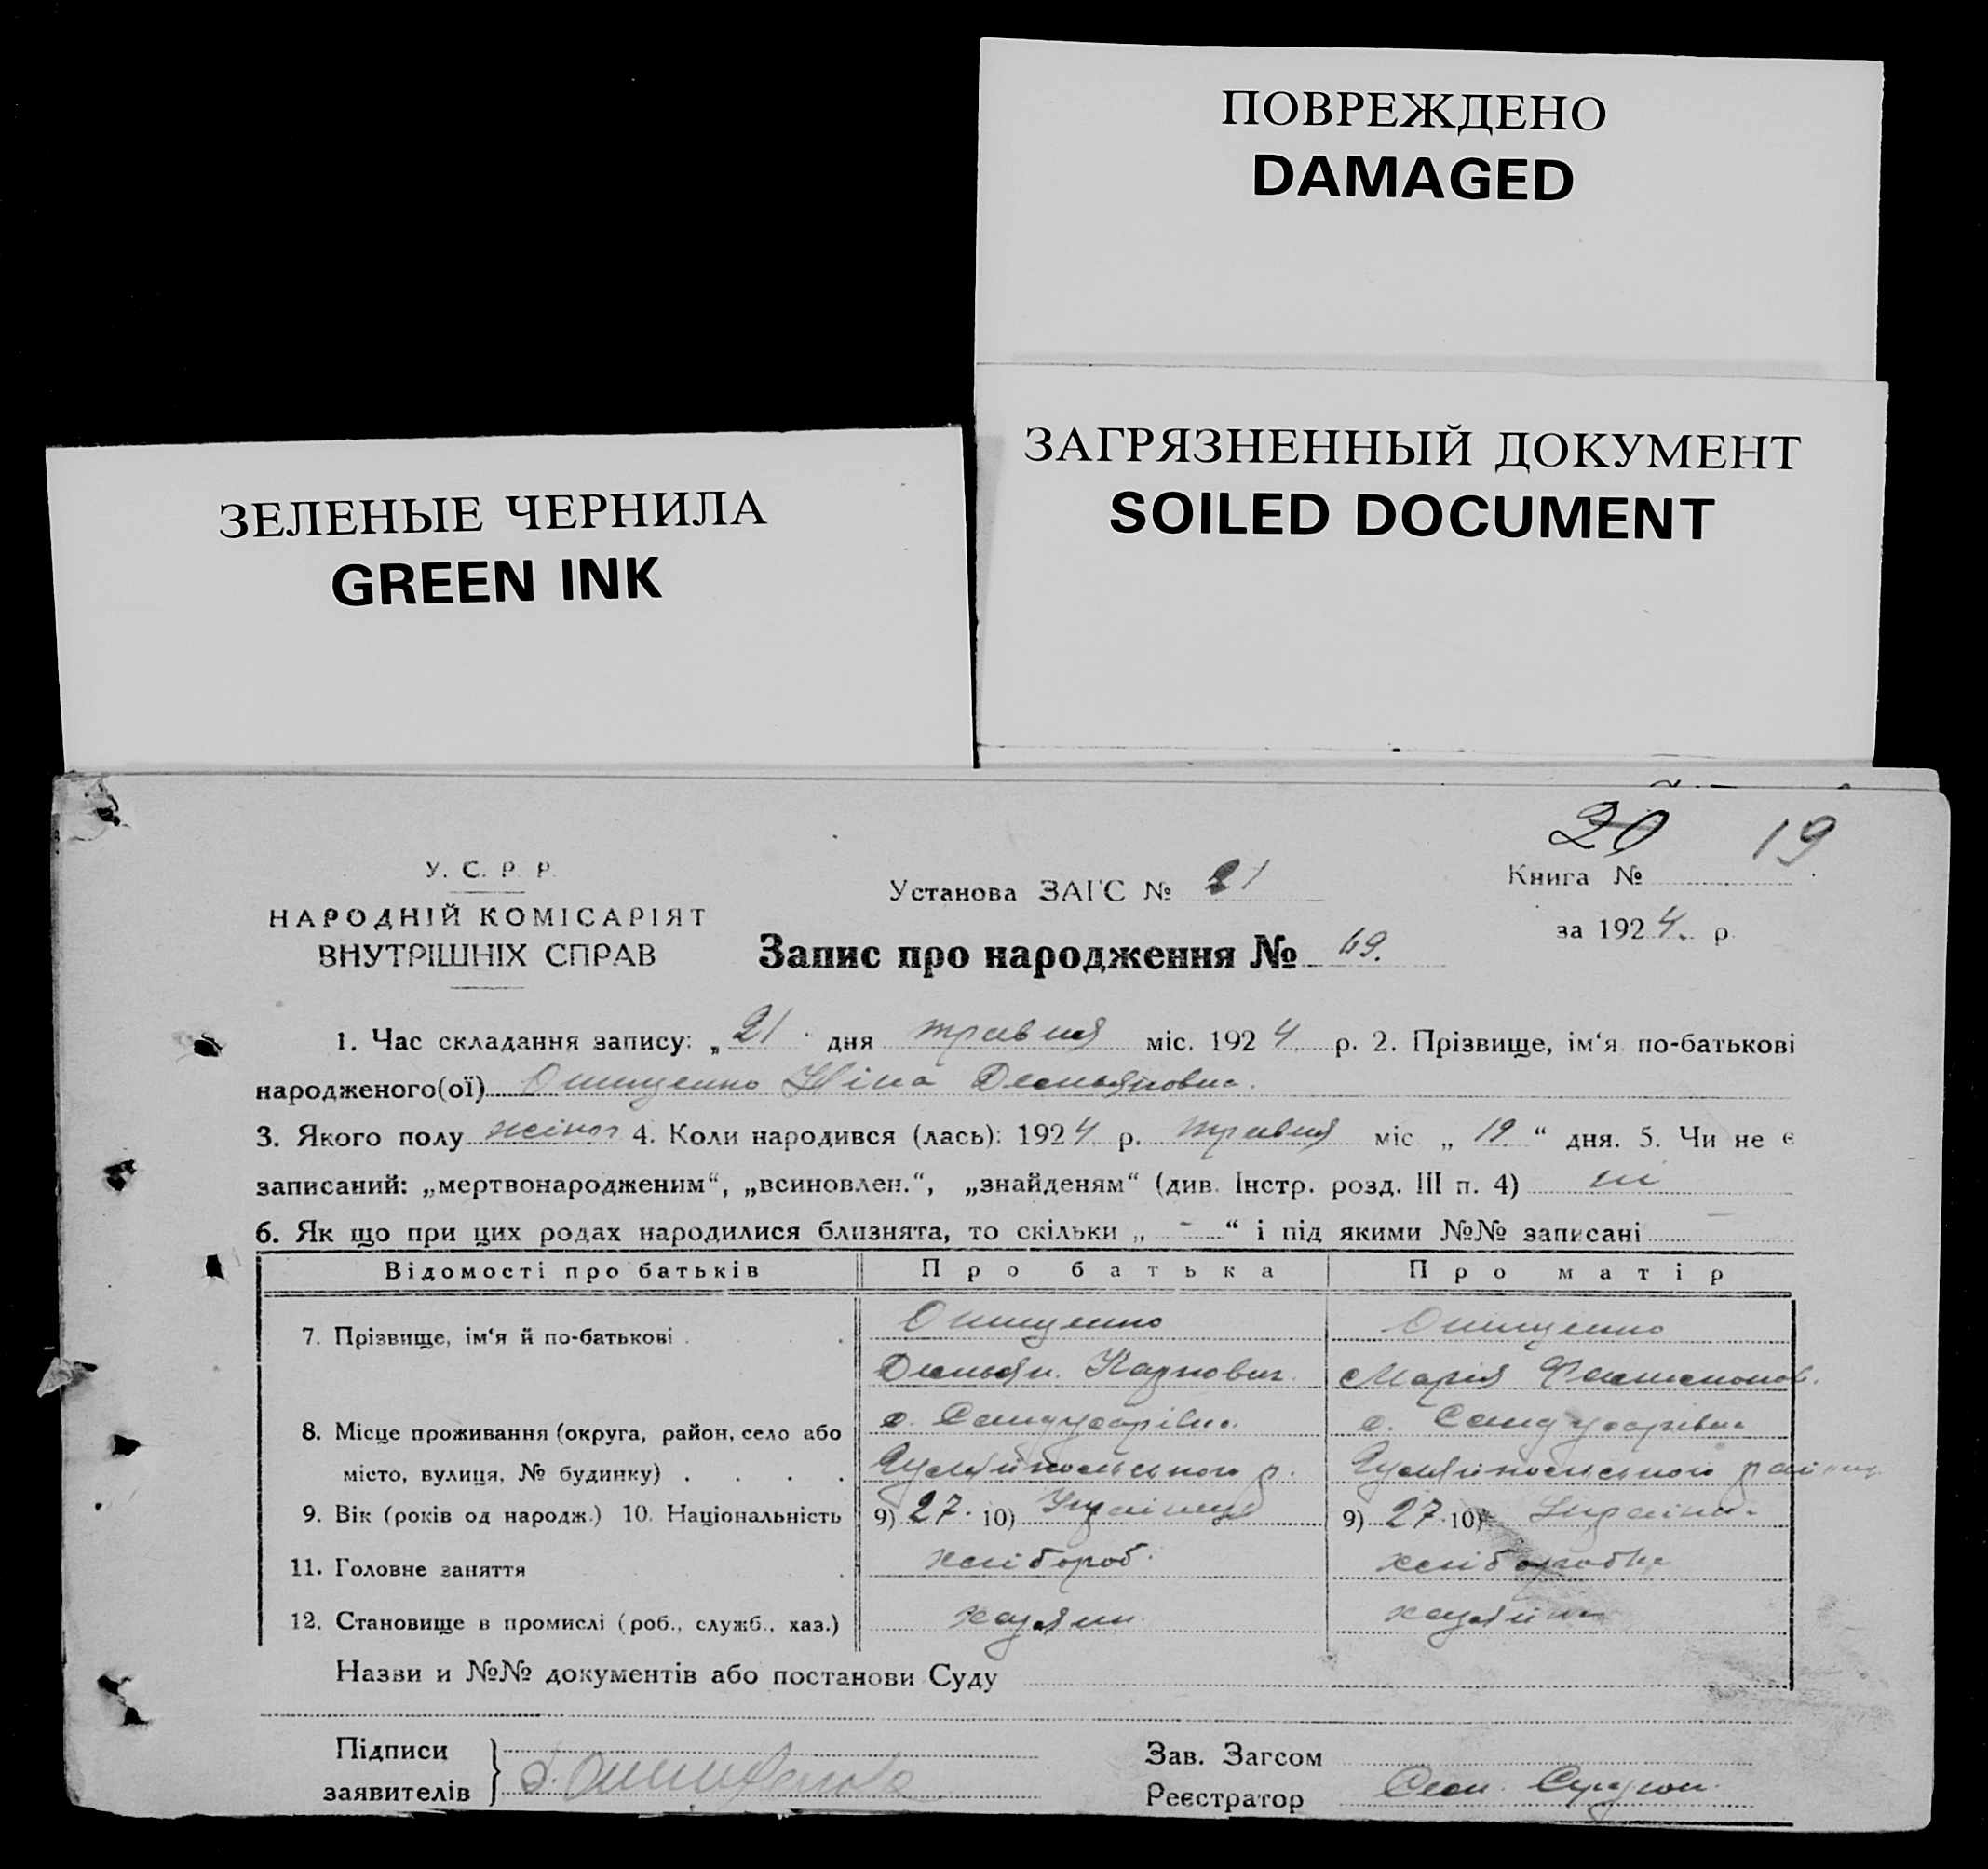 ПОВРЕЖДЕНО
DAMAGED
ЗАГРЯЗНЕННЫЙ ДОКУМЕНТ
SOILED DOCUMENT
ЗЕЛЕНЫЕ ЧЕРНИЛА
GREEN INK
20 19
У. С. Р. Р.
НАРОДНІЙ КОМІСАРІЯТ
ВНУТРІШНІХ СПРАВ
Установа ЗАГС № 21
Книга №
за 1924. р.
Запис про народження № 69.
1. Час складання запису: „21 дня травня міс. 1924 р. 2. Прізвище, ім‘я по-батькові
народженого(ої) Онищенко Ніна Демьяновна.
3. Якого полу жіноч 4. Коли народився (лась): 1924 р. травня міс „ 19 “ дня. 5. Чи не є
записаний: „мертвонародженим“, „всиновлен.“, „знайденям“ (див. Інстр. розд. III п. 4) ні
6. Як що при цих родах народилися близнята, то скільки „ - “ і під якими №№ записані —
Відомості про батьків Про батька Про матір
7. Прізвище, ім‘я й по-батькові . . Онищенко Онищенко
Демьян. Карпович. Марія
8. Місце проживання (округа, район, село або с. с.
місто, вулиця, № будинку) . . . . Гуляйпольського р. Гуляйпольського району
9. Вік (років од народж.) 10. Національність 9) 27. 10) Українець 9) 27. 10) Україн.
11. Головне заняття . хлібороб. хлібороб
12. Становище в промислі (роб., служб., хаз.) хазяин хазяйка
Назви и №№ документів або постанови Суду
Підписи
заявителів
Зав. Загсом
Реєстратор